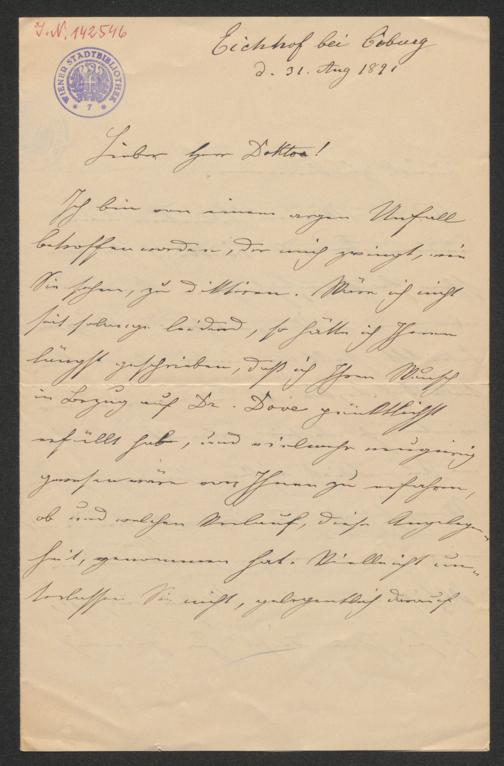 J.N. 142546
WIENER STADTBIBLIOTHEK
7
Eichhof bei Coburg
d. 31. Aug 1891
Lieber Herr Doktor!
Ich bin von einem argen Unfall
betroffen worden, der mich zwingt, wie
Sie sehen, zu diktiren. Wäre ich nicht
seit solange leidend, so hätte ich Ihnen
längst geschrieben, daß ich Ihren Wunsch
in Bezug auf Dr. Dove pünktlichst
erfüllt habe, und vielmehr neugierig
gewesen wäre von Ihnen zu erfahren,
ob und welchen Verlauf, diese Angelegen-
heit, genommen hat. Vielleicht un-
terlassen Sie nicht, gelegentlich darauf